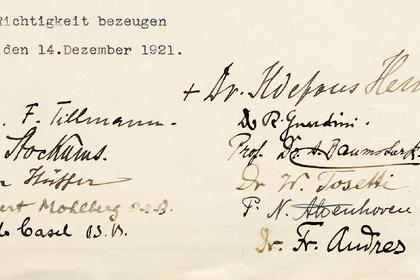 Richtigkeit bezeugen
den 14.Dezember 1921.
+ Dr. Ildefons Her
. F. Tillmann.
Dr R. Guardini.
Stockums.
Prof. Dr. A. Baumstark
Hüffer
Dr W. Tosetti
ert Mohlberg O.S.B.
P. N. Abenhoven
do Casel O.S.B.
Dr. Fr. Andres